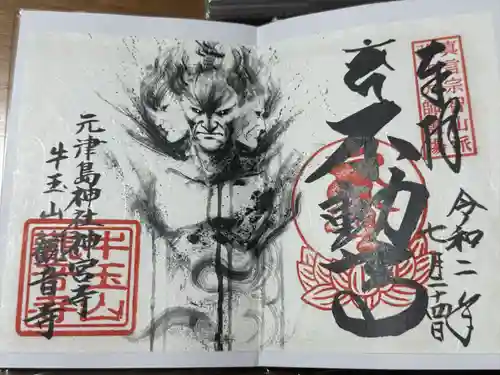 奉拝
真言宗智山派
大不動己
令和二年
七月二十四日
元津島神社神宮寺
牛玉山
觀音寺
牛玉山
觀音寺